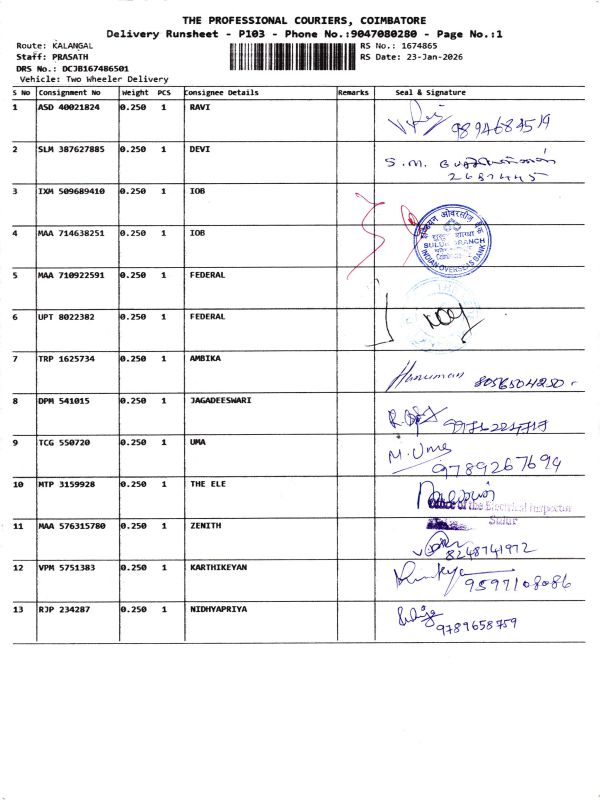 THE PROFESSIONAL COURIERS, COIMBATORE
Delivery Runsheet - P103 - Phone No.:9047080280 - Page No.:1
Route: KALANGAL RS No.: 1674865
Staff: PRASATH RS Date: 23-Jan-2026
DRS No.: DCJB167486501
Vehicle: Two Wheeler Delivery
S No Consignment No Weight PCS Consignee Details Remarks Seal & Signature
1 ASD 40021824 0.250 1 RAVI
2 SLM 387627885 0.250 1 DEVI S.M.
2687445
3 IXM 509689410 0.250 1 IOB
4 MAA 714638251 0.250 1 IOB SULUR BRANCH INDIAN OVERSEAS BANK
5 MAA 710922591 0.250 1 FEDERAL
6 UPT 8022382 0.250 1 FEDERAL
7 TRP 1625734 0.250 1 AMBIKA Hanuman 8056504250
8 DPM 541015 0.250 1 JAGADEESWARI
9 TCG 550720 0.250 1 UMA M. Uma
9789267694
10 MTP 3159928 0.250 1 THE ELE
Office of the Electrical Inspector
Sulur
11 MAA 576315780 0.250 1 ZENITH
8248741972
12 VPM 5751383 0.250 1 KARTHIKEYAN
9597108086
13 RJP 234287 0.250 1 NIDHYAPRIYA
9789658759